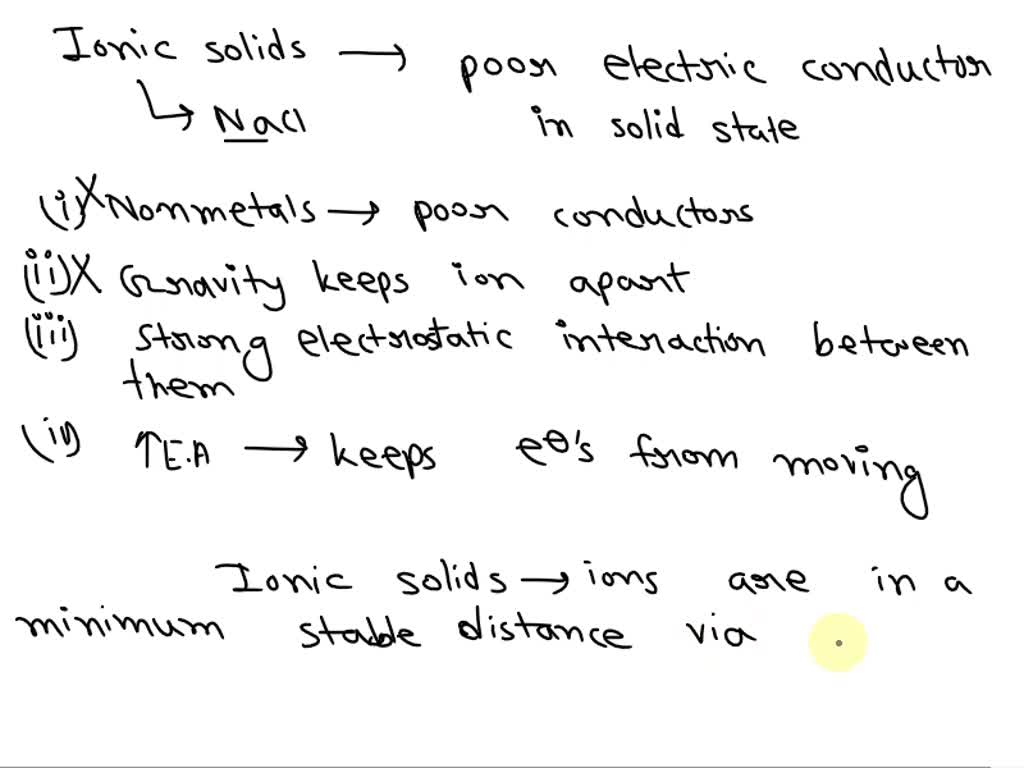 Ionic solids → poor electric conductor
↳ NaCl in solid state
(i)X Nonmetals → poor conductors
(ii)X Gravity keeps ion apart
(iii) strong electrostatic interaction between
them
(iv) ↑E.A → keeps e⊖'s from moving
Ionic solids → ions are in a
minimum stable distance via